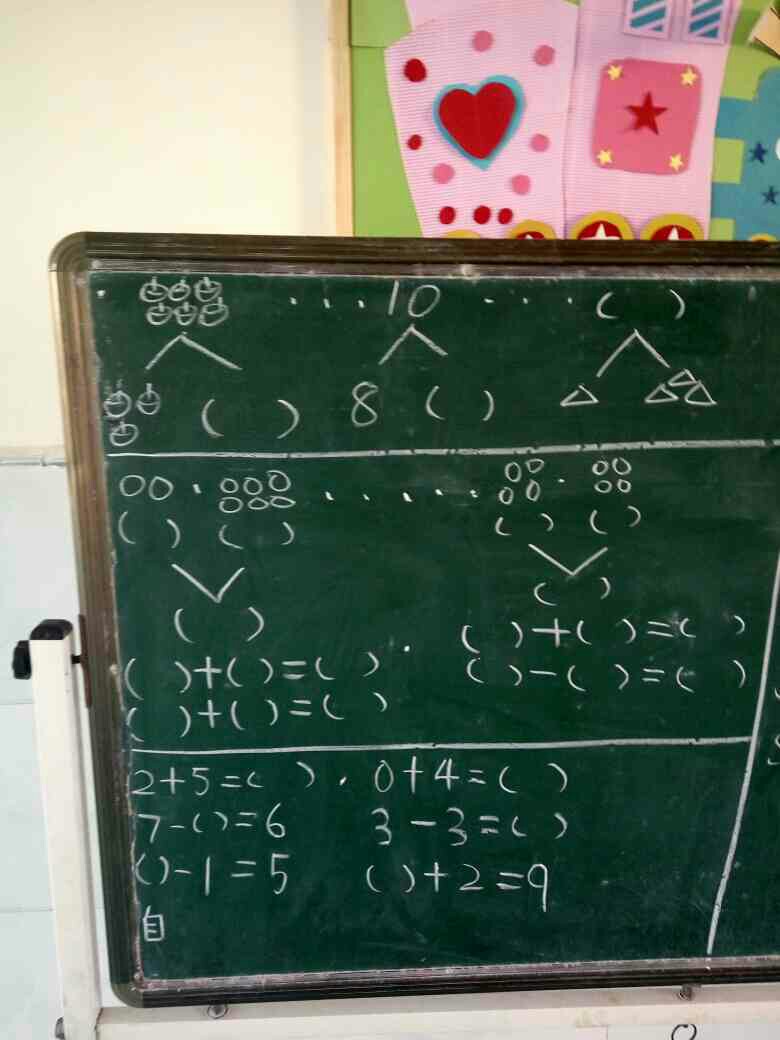 . . . . 10 . . . ( )
( ) 8 ( )
. . . . . . . .
( ) ( ) ( ) ( )
( ) ( )
( )+( )=( ) . ( )+( )=( )
( )+( )=( ) ( )-( )=( )
2+5=( ) . 0+4=( )
7-( )=6 3-3=( )
( )-1=5 ( )+2=9
自